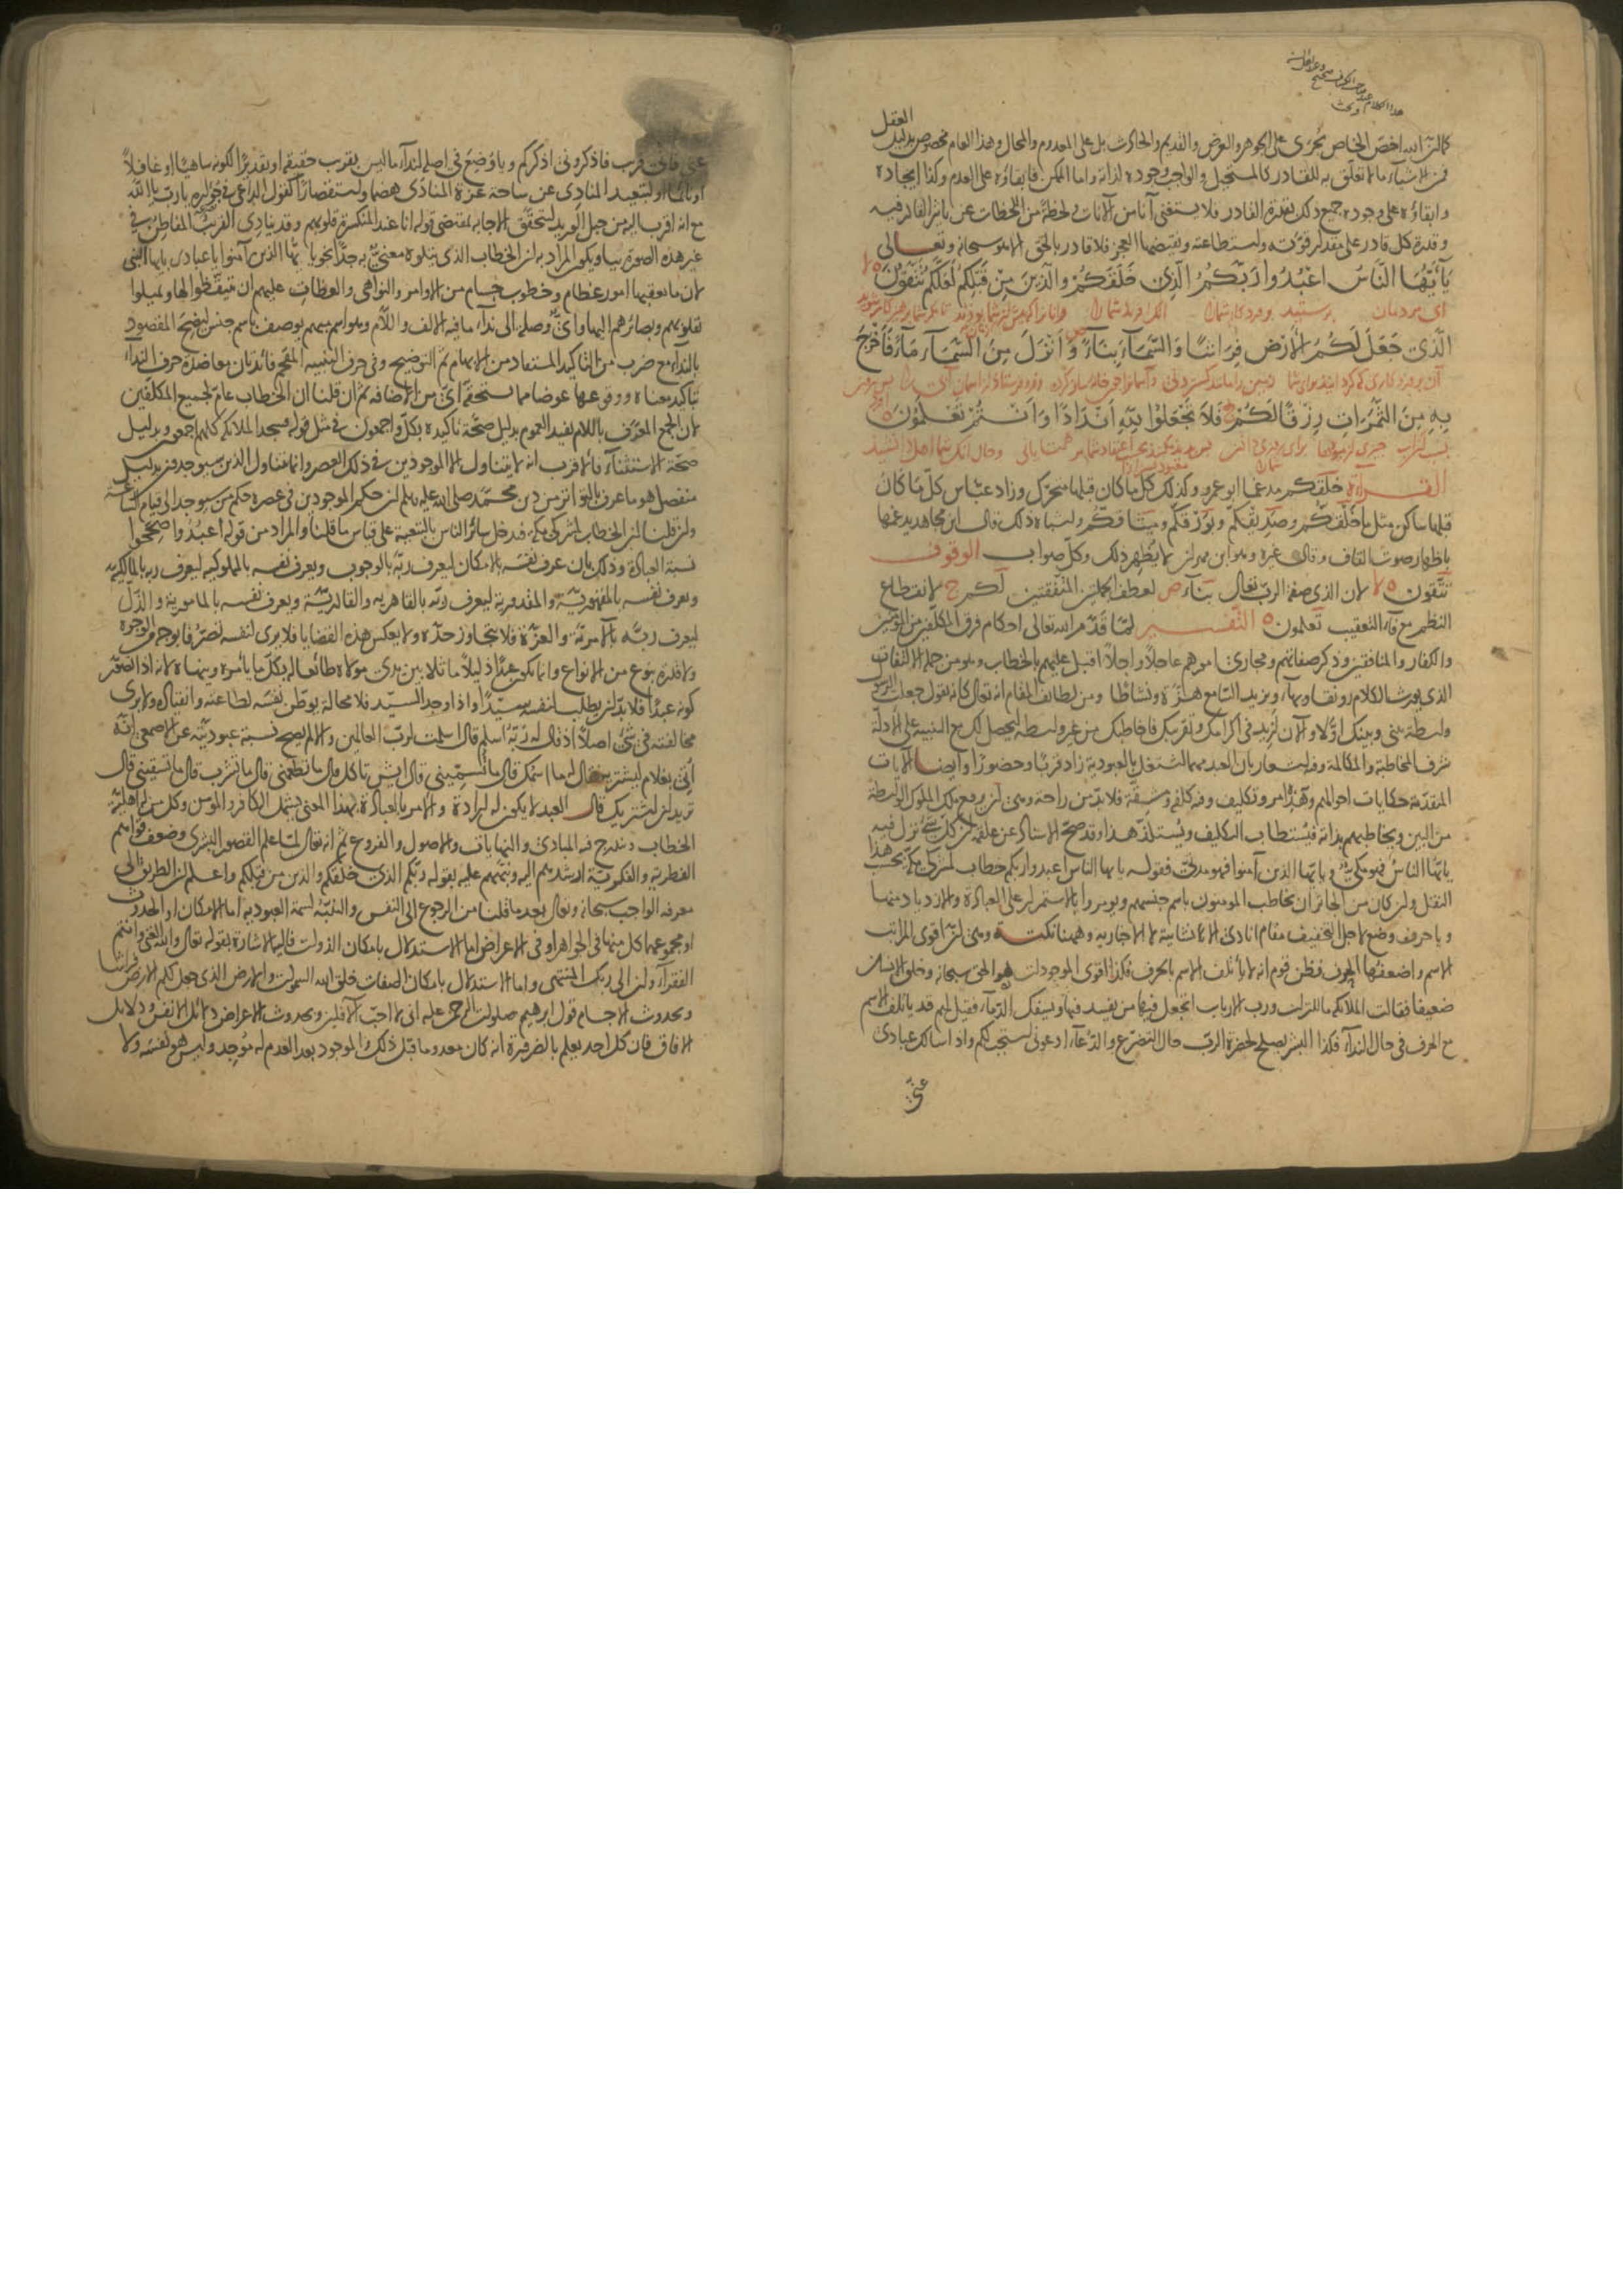 العقل
كما ان الله اخص الخاص يجرى على الجوهر والعرض والقديم والحادث بل على المعدوم والمحال وهذا العام مخصوص بدليل
فمن الاشياء ما لا تعلق به للقادر كالمستحيل والواجب وجوده لذاته واما الممكن فابقاؤه على العدم وكذا ايجاده
وابقاؤه على وجوده جميع ذلك بقدرة القادر فلا يستغنى آنا من الآنات ولحظة من اللحظات عن تاثير القادر فيه
وقدرة كل قادر على مقدار قوته واستطاعته ونقيضها العجز فلا قادر بالحق الا هو سبحانه وتعالى
يَا أَيُّهَا النَّاسُ اعْبُدُوا رَبَّكُمُ الَّذِي خَلَقَكُمْ وَالَّذِينَ مِنْ قَبْلِكُمْ لَعَلَّكُمْ تَتَّقُونَ لا
اى مردمان پرستيد پروردكار شما را انك افريد شما را وانانرا كه پيش از شما بودند
الَّذِي جَعَلَ لَكُمُ الْأَرْضَ فِرَاشًا وَالسَّمَاءَ بِنَاءً وَأَنْزَلَ مِنَ السَّمَاءِ مَاءً فَأَخْرَجَ
بِهِ مِنَ الثَّمَرَاتِ رِزْقًا لَكُمْ فَلَا تَجْعَلُوا لِلَّهِ أَنْدَادًا وَأَنْتُمْ تَعْلَمُونَ
القراءة خلقكم مدغما ابو عمرو وكذلك كل ما كان قبلها متحرك وزاد عباس كل ما كان
قبلها ساكن مثل ما خلقكم وصديقكم وبورقكم وميثاقكم واشباه ذلك وقال ابن مجاهد يدغمها
باظهار صوت القاف وقال غيره وهو ابن مهران لا يظهر ذلك وكل صواب الوقوف
تتقون لا لان الذى صفة الرب تعالى بناء ص لعطف الجملتين المتفقتين لكم ج لانقطاع
النظم مع فاء التعقيب تعلمون التفسير لما قدم الله تعالى احكام فرق المكلفين من المؤمنين
والكفار والمنافقين وذكر صفاتهم ومجارى امورهم عاجلا واجلا اقبل عليهم بالخطاب وهو من جملة الالتفات
الذى يورث الكلام رونقا وبهاء ويزيد السامع هزة ونشاطا ومن لطائف المقام انه تعالى كانه يقول جعلت الرسول
واسطة بينى وبينك اولا والآن ازيد فى اكرامك وتقريبك فاخاطبك من غير واسطة ليحصل لك مع التنبيه على الادلة
شرف المخاطبة والمكالمة وفيه اشعار بان العبد مهما اشتغل بالعبودية زاد قربا وحضورا وايضا الآيات
المتقدمة حكايات احوالهم وهذا امر وتكليف وفيه كلفة ومشقة فلا بد من راحة وهى ان يرفع ملك الملوك الواسطة
من البين ويخاطبهم بذاته فيستطاب التكليف ويستلذ هذا وقد صح الاسناد عن علقمة ان كل شىء نزل فيه
يا ايها الناس فهو مكى ويا ايها الذين آمنوا فهو مدنى فقوله يا ايها الناس اعبدوا ربكم خطاب لمشركى مكة بحسب هذا
النقل وان كان من الجائز ان يخاطب المؤمنون باسم جنسهم ويؤمروا بالاستمرار على العبادة والازدياد منها
ويا حرف وضع لاجل التخفيف مقام انادى الانشائية لا الاخبارية وههنا نكتة وهى ان اقوى المراتب
الاسم واضعفها الحرف فظن قوم انه لا يأتلف الاسم بالحرف فكذا اقوى الموجودات هو الحق سبحانه وخلق الانسان
ضعيفا فقالت الملائكة ما للتراب ورب الارباب اتجعل فيها من يفسد فيها ويسفك الدماء فقيل لهم قد يأتلف الاسم
مع الحرف فى حال النداء فكذا البشر يصلح لحضرة الرب حال التضرع والدعاء ادعونى استجب لكم واذا سالك عبادى
عنى
عنى فانى قريب فاذكرونى اذكركم ويا وضع فى اصله لنداء ما ليس بقريب حقيقة او تقديرا لكونه ساهيا او غافلا
او نائما او لتبعيد المنادى عن ساحة عزة المنادى هضما واستقصارا كقول الداعى فى جؤاره يا رب يا الله
مع انه اقرب اليه من حبل الوريد لتحقق الاجابة بمقتضى قوله انا عند المنكسرة قلوبهم وقد ينادى القريب المفاطن فى
غير هذه الصورة بيا ويكون المراد به ان الخطاب الذى يتلوه معنى به جدا نحو يا ايها الذين آمنوا يا عبادى يا ايها النبى
لان ما يعقبها امور عظام وخطوب جسام من الاوامر والنواهى والعظات عليهم ان يتيقظوا لها ويميلوا
بقلوبهم وبصائرهم اليها واى وصلة الى نداء ما فيه الالف واللام وهو اسم مبهم يوصف باسم جنس ليضح المقصود
بالنداء مع ضرب من التاكيد المستفاد من الابهام ثم التوضيح وفى حرف التنبيه المقحم فائدتان معاضدة حرف النداء
بتاكيد معناه ووقوعها عوضا مما يستحقه اى من الاضافة ثم ان قلنا ان الخطاب عام لجميع المكلفين
لان الجمع المعرف باللام يفيد العموم بدليل صحة تاكيده بكل واجمعون فى مثل قوله فسجد الملائكة كلهم اجمعون وبدليل
صحة الاستثناء فالاقرب انه لا يتناول الا الموجودين فى ذلك العصر وانما تناول الذين سيوجدون بدليل
منفصل هو ما عرف بالتواتر من دين محمد صلى الله عليه وسلم ان حكم الموجودين فى عصره حكم من سيوجد الى قيام الساعة
وان قلنا ان الخطاب لمشركى مكة فدخل سائر الناس بالتبعية على قياس ما قلنا والمراد من قوله اعبدوا صححوا
نسبة العبادة وذلك بان عرف نفسه بالامكان ليعرف ربه بالوجوب ويعرف نفسه بالمملوكية ليعرف ربه بالمالكية
ويعرف نفسه بالمقهورية والمقدورية ليعرف ربه بالقاهرية والقادرية ويعرف نفسه بالمامورية والذل
ليعرف ربه بالآمرية والعزة فلا يتجاوز حده ولا يعكس هذه القضايا فلا يرى لنفسه تصرفا بوجه من الوجوه
ولا قدرة بنوع من الانواع وانما يكون عبدا ذليلا ماثلا بين يدى مولاه طائعا له بكل ما يأمره وينهاه لانه اذا تصور
كونه عبدا فلا بد ان يطلب لنفسه سيدا واذا وجد السيد فلا محالة يوطن نفسه لطاعته وانقياده ولا يرى
مخالفته فى شىء اصلا اذ قال له ربه اسلم قال اسلمت لرب العالمين والا لم يصح نسبة عبوديته عن الاصمعى انه
أتى بغلام ليشتريه فقال له ما اسمك قال ما تسمينى قال ايش تاكل قال ما تطعمنى قال ما تشرب قال ما تسقينى قال
تريد ان اشتريك قال العبد لا يكون له ارادة والامر بالعبادة بهذا المعنى يشمل الكافر والمؤمن وكل من له اهلية
الخطاب وتندرج فيه المبادئ والنهايات والاصول والفروع ثم انه تعالى لما علم القصور البشرى وضعف قواهم
الفطرية والفكرية ارشدهم اليه ونبههم عليه بقوله ربكم الذى خلقكم والذين من قبلكم واعلم ان الطريق الى
معرفة الواجب سبحانه وتعالى بعد ما قلنا من الرجوع الى النفس والتنبه لسمة العبودية اما الامكان او الحدوث
او مجموعهما كل منها فى الجواهر او فى الاعراض اما الاستدلال بامكان الذوات فاليه الاشارة بقوله تعالى والله الغنى وانتم
الفقراء وان الى ربك المنتهى واما الاستدلال بامكان الصفات خلق الله السموات والارض الذى جعل لكم الارض فراشا
وبحدوث الاجسام قول ابرهيم صلوات الرحمن عليه انى لا احب الآفلين وبحدوث الاعراض دلائل الانفس ودلائل
الافاق فان كل احد يعلم بالضرورة انه كان معدوما قبل ذلك والموجود بعد العدم له موجد وليس هو نفسه ولا